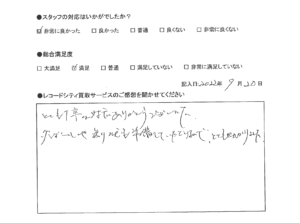 ●スタッフの対応はいかがでしたか?
☑ 非常に良かった □ 良かった □ 普通 □ 良くない □ 非常に良くない
●総合満足度
□ 大満足 ☑ 満足 □ 普通 □ 満足していない □ 非常に満足していない
記入日 2022年 9月 20日
●レコードシティ買取サービスのご感想を聞かせてください
とても丁寧な対応ありがとうございました。
ダンボールや送り状も準備していただけるので、とても助かりました。